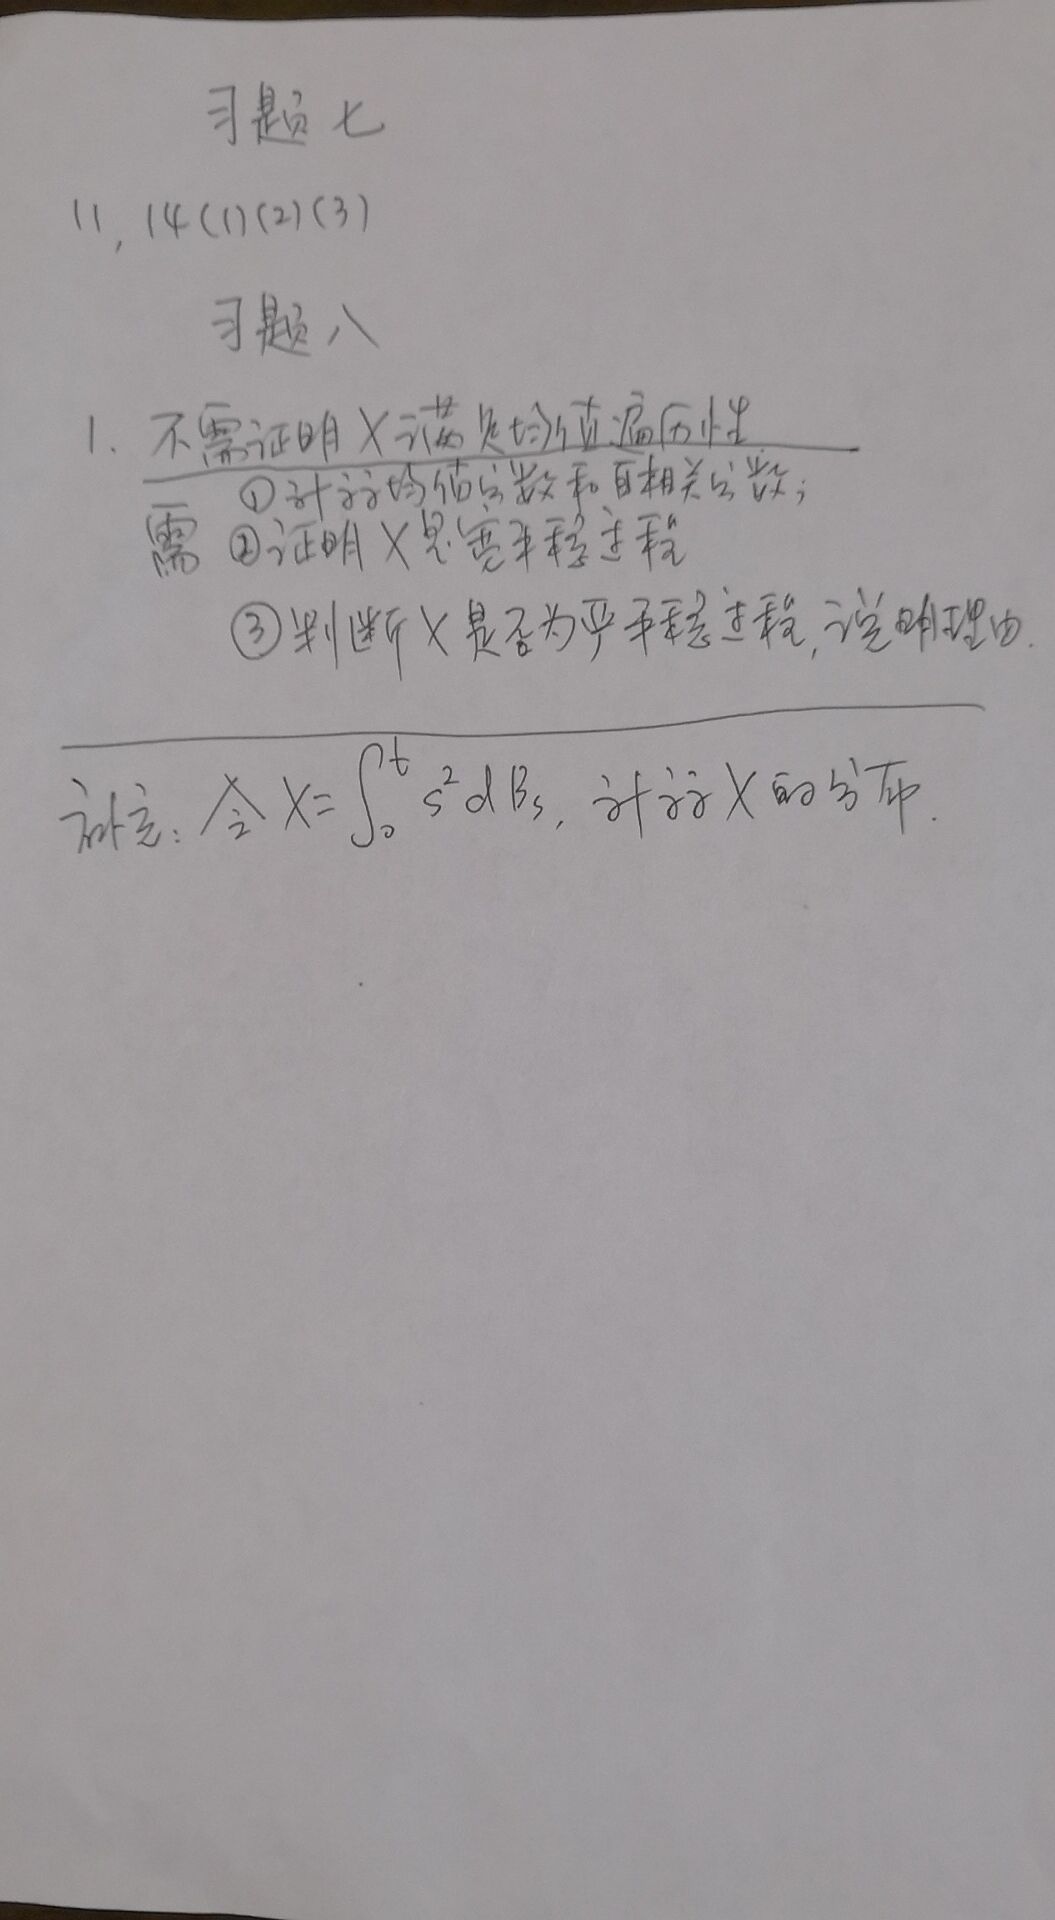 习题七
11, 14(1)(2)(3)
习题八
1. 不需证明X满足均值遍历性
①计算均值函数和自相关函数;
需 ②证明X是宽平稳过程
③判断X是否为严平稳过程,说明理由.
补充: 令X=∫₀ᵗ s²dBs, 计算X的分布.